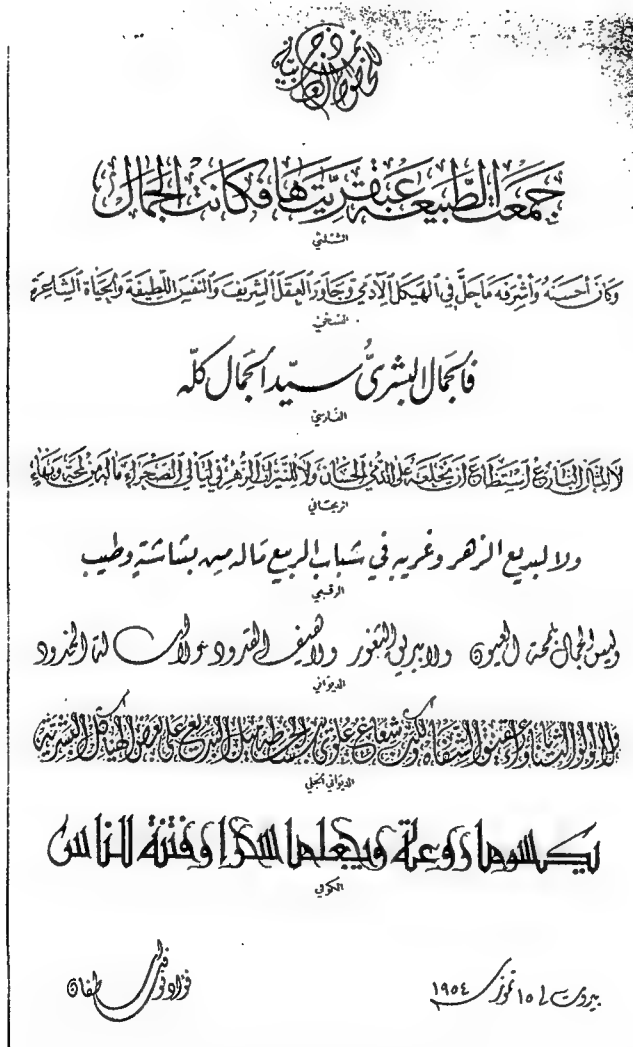 نماذج الخطوط العربية
جمعت الطبيعة عبقريتها فكانت الجمال
الثلثي
وكان أحسنه وأشرفه ماحل في الهيكل الآدمي وجاور العقل الشريف والنفس اللطيفة والحياة الشاعرة
النسخي
فالجمال البشري سيد الجمال كله
الفارسي
لا المثال البارع استطاع أن يخلعه على الدمى الحسان ولا للنيرات الزهر في ليالي الصحراء ماله من لمحة وبهاء
الريحاني
ولا لبديع الزهر وغريبه في شباب الربيع ماله من بشاشة وطيب
الرقعي
وليس الجمال بلمحة العيون ولا ببريق الثغور ولا هيف القدود ولا أسالة الخدود
الديواني
ولا لؤلؤ الثنايا ولا عقيق الشفاه ولكن شعاع علوي يبسطه الجميل البديع على بعض الهياكل البشرية
الديواني الجلي
يكسوها روعة ويجعلها سحرا وفتنة للناس
الكوفي
بيروت في ١٥ تموز ١٩٥٤
فؤاد اسطفان